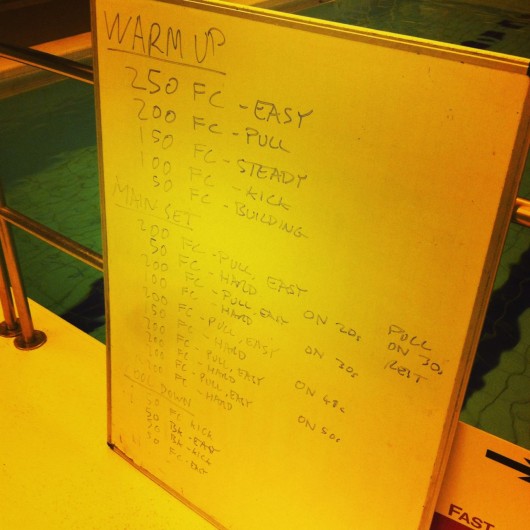 WARM UP
250 FC - EASY
200 FC - PULL
150 FC - STEADY
100 FC - KICK
50 FC - BUILDING
MAIN SET
200 FC - PULL, EASY
50 FC - HARD ON 20s PULL
200 FC - PULL, EASY ON 30s
100 FC - HARD ON 30s REST
200 FC - PULL, EASY
150 FC - HARD ON 45s
200 FC - PULL, EASY
200 FC - HARD ON 50s
FC - PULL, EASY
FC - HARD
COOL DOWN
50 FC KICK
50 BK - EASY
50 BK - KICK
50 FC - EASY
FAST